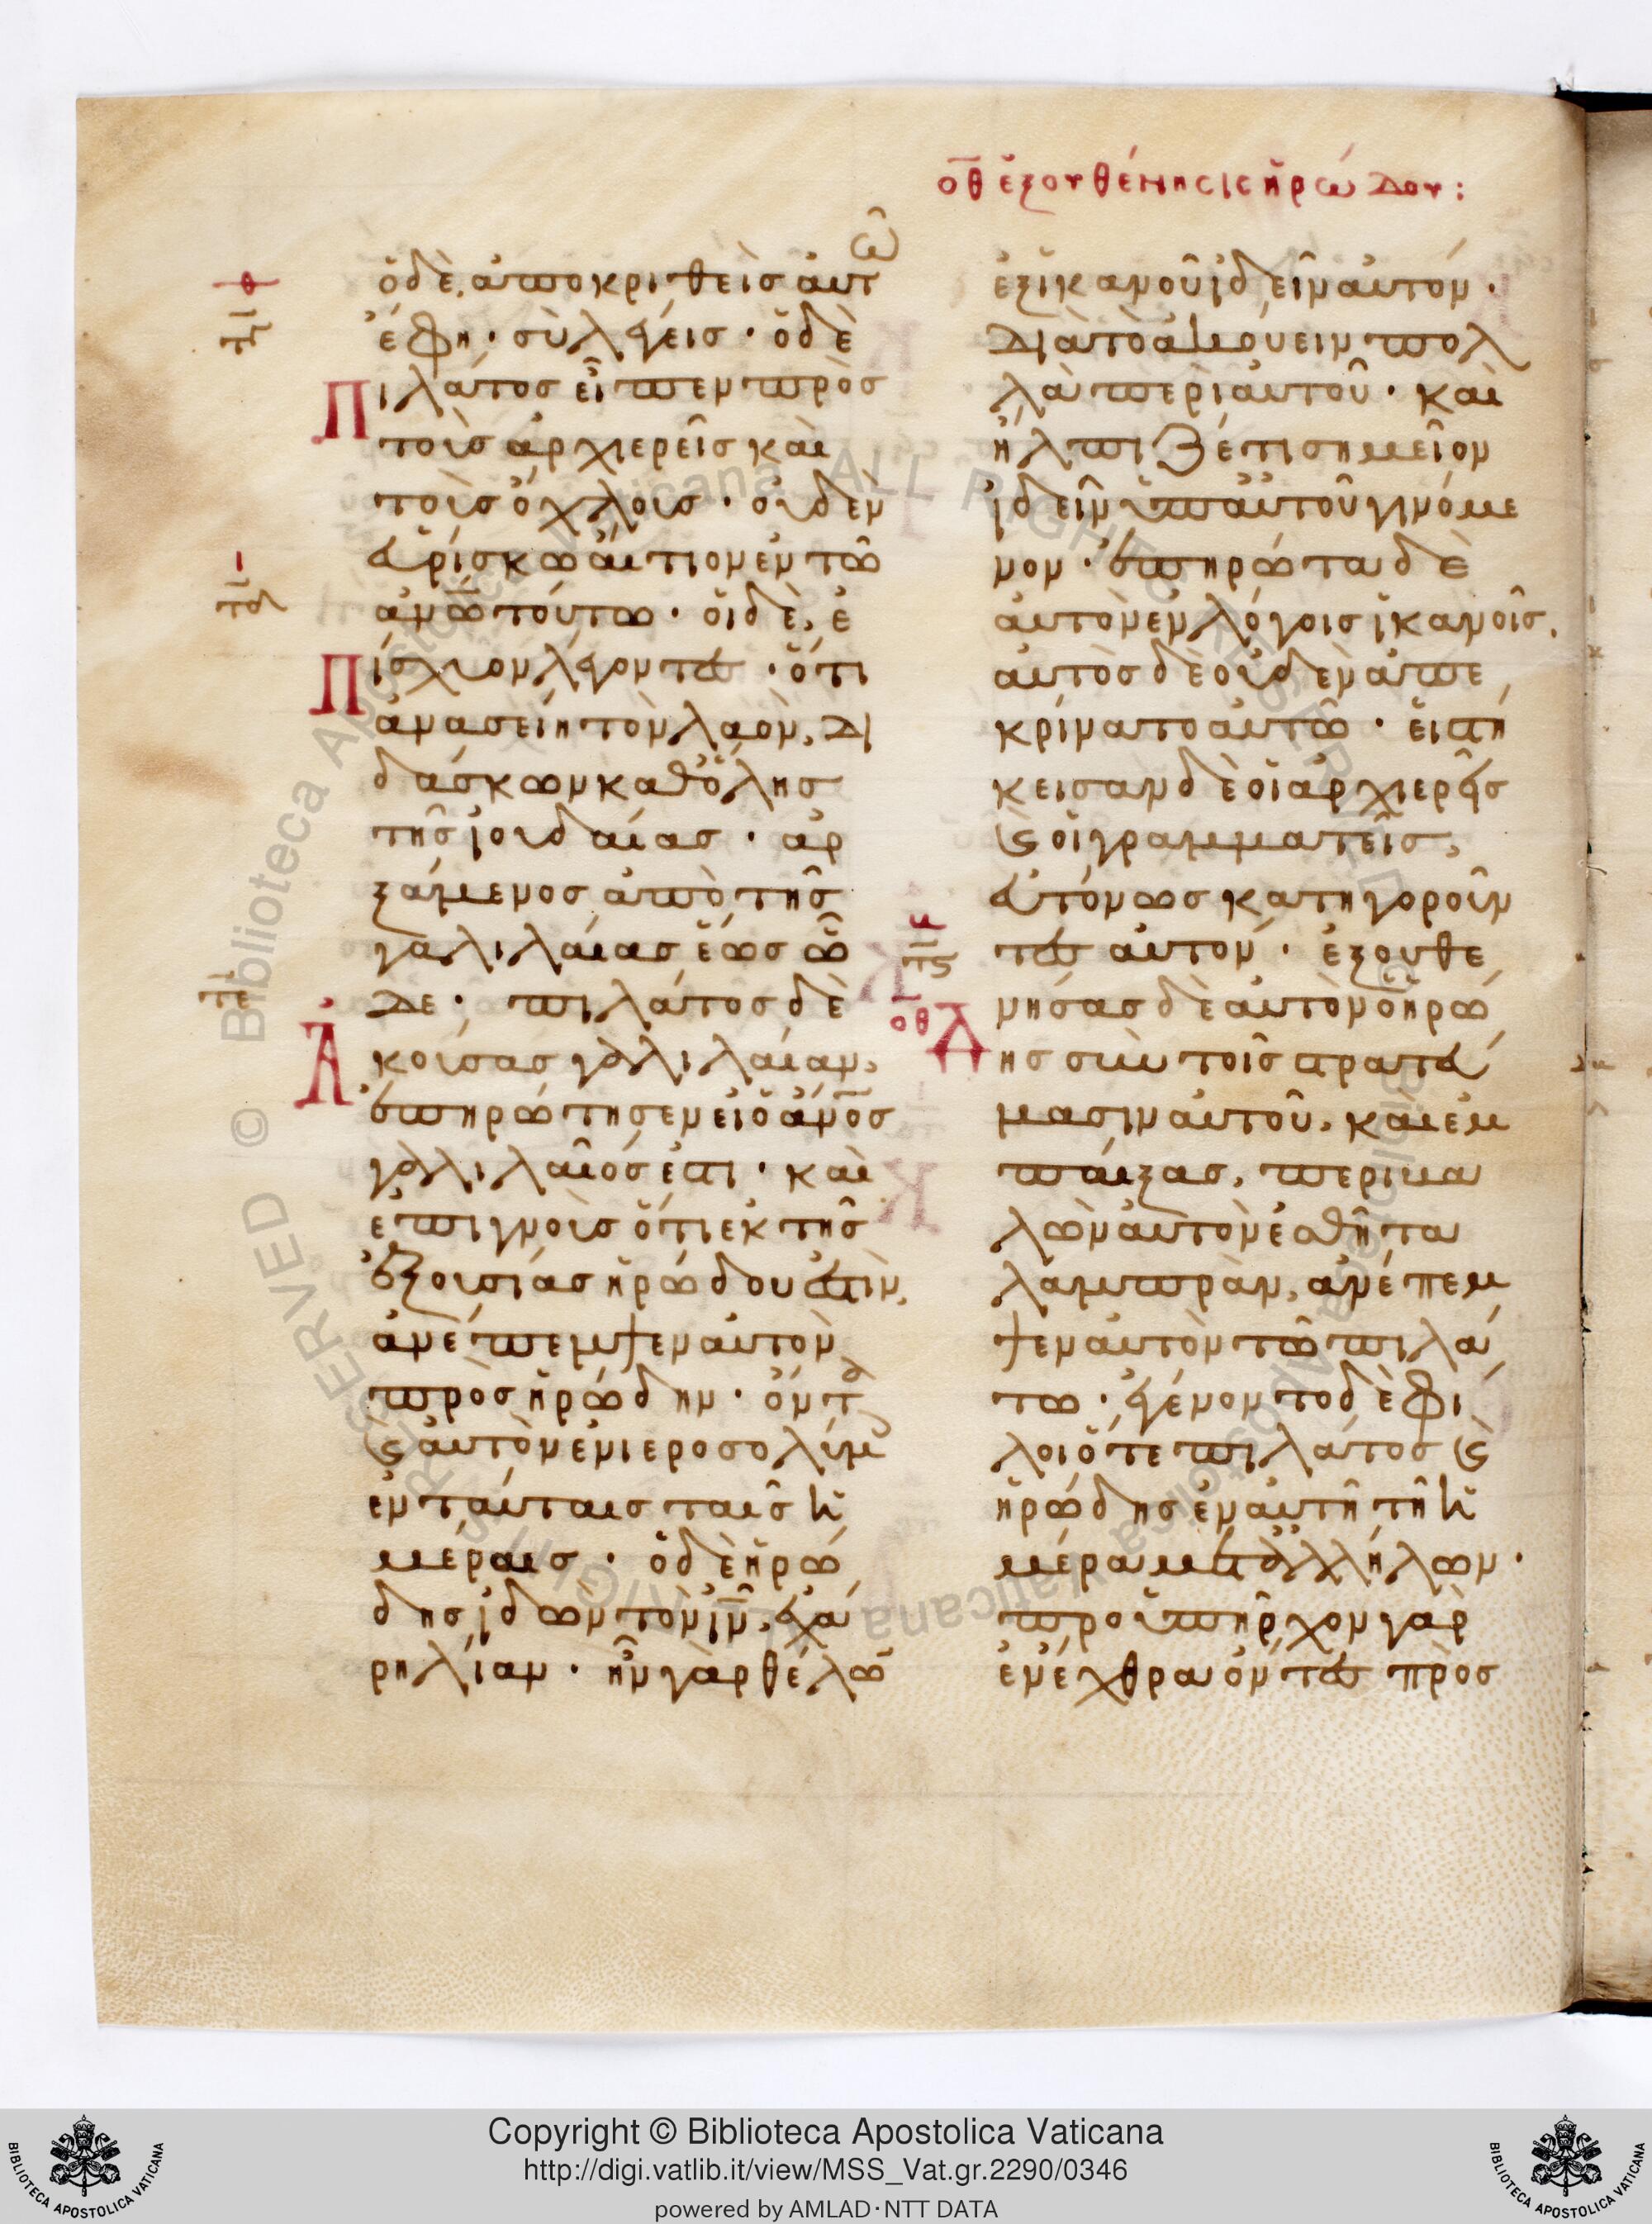 οθ ἐξουθένησις ἡρώδου:
ὁ δὲ ἀποκριθεὶς αὐτῶ
ἔφη· σὺ λέγεις· ὁ δὲ
Πιλάτος εἶπεν πρὸς
τοὺς ἀρχιερεῖς καὶ
τοὺς ὄχλους· οὐδὲν
εὑρίσκω αἴτιον ἐν τῶ
ἀνω̅ τούτω· οἱ δὲ, ἐ
Πίσχυον λέγοντες· ὅτι
ἀνασείη τὸν λαὸν, δι
δάσκων καθ' ὅλης
τῆς ἰουδαίας· ἀρ
ξάμενος ἀπὸ τῆς
γαλιλαίας ἕως ὧ
δε· πιλάτος δὲ
Ἀκούσας γαλιλαίαν,
ἐπηρώτησεν εἰ ὁ ἀν̅ο̅ς
γαλιλαῖός ἐστι· καὶ
ἐπιγνοὺς ὅτι ἐκ τῆς
ἐξουσίας ἡρώδου ἐστὶν,
ἀνέπεμψεν αὐτὸν
πρὸς ἡρώδην· ὄντα
ϗ αὐτὸν ἐν ιεροσολύμ
ἐν ταύταις ταῖς ἡ
μέραις· ὁ δὲ ἡρώ
δης ἰδὼν τὸν ι̅ν̅, ἐχά
ρη λίαν· ἦν γὰρ θέλω̅
ἐξ ἱκανοῦ ἰδεῖν αὐτόν·
διὰ τὸ ἀκούειν πολ
λὰ περὶ αὐτοῦ· καὶ
ἤλπιζέ τι σημεῖον
ἰδεῖν ὑπ' αὐτοῦ γινόμε
νον· ἐπηρώτα δὲ
αὐτὸν ἐν λόγοις ἱκανοῖς,
αὐτὸς δὲ οὐδὲν ἀπε
κρίνατο αὐτῶ· εἱστή
κεισαν δὲ οἱ ἀρχιερεῖς
ϗ οἱ γραμματεῖς,
εὐτόνως κατηγοροῦν
τες αὐτοῦ· ἐξουθε
νήσας δὲ αὐτὸν ὁ ἡρώ
οθ Δης σὺν τοῖς στρατεύ
μασιν αὐτοῦ, καὶ ἐμ
παίξας, περιβα
λὼν αὐτὸν ἐσθῆτα
λαμπρὰν, ἀνέπεμ
ψεν αὐτὸν τῶ πιλά
τω· ἐγένοντο δὲ φί
λοι ὅ τε πιλάτος ϗ
ἡρώδης ἐν αὐτῆ τῆ ἡ
μέρα μετ' ἀλλήλων·
προϋπῆρχον γὰρ
ἐν ἔχθρα ὄντες πρὸς
Copyright © Biblioteca Apostolica Vaticana
http://digi.vatlib.it/view/MSS_Vat.gr.2290/0346
powered by AMLAD·NTT DATA